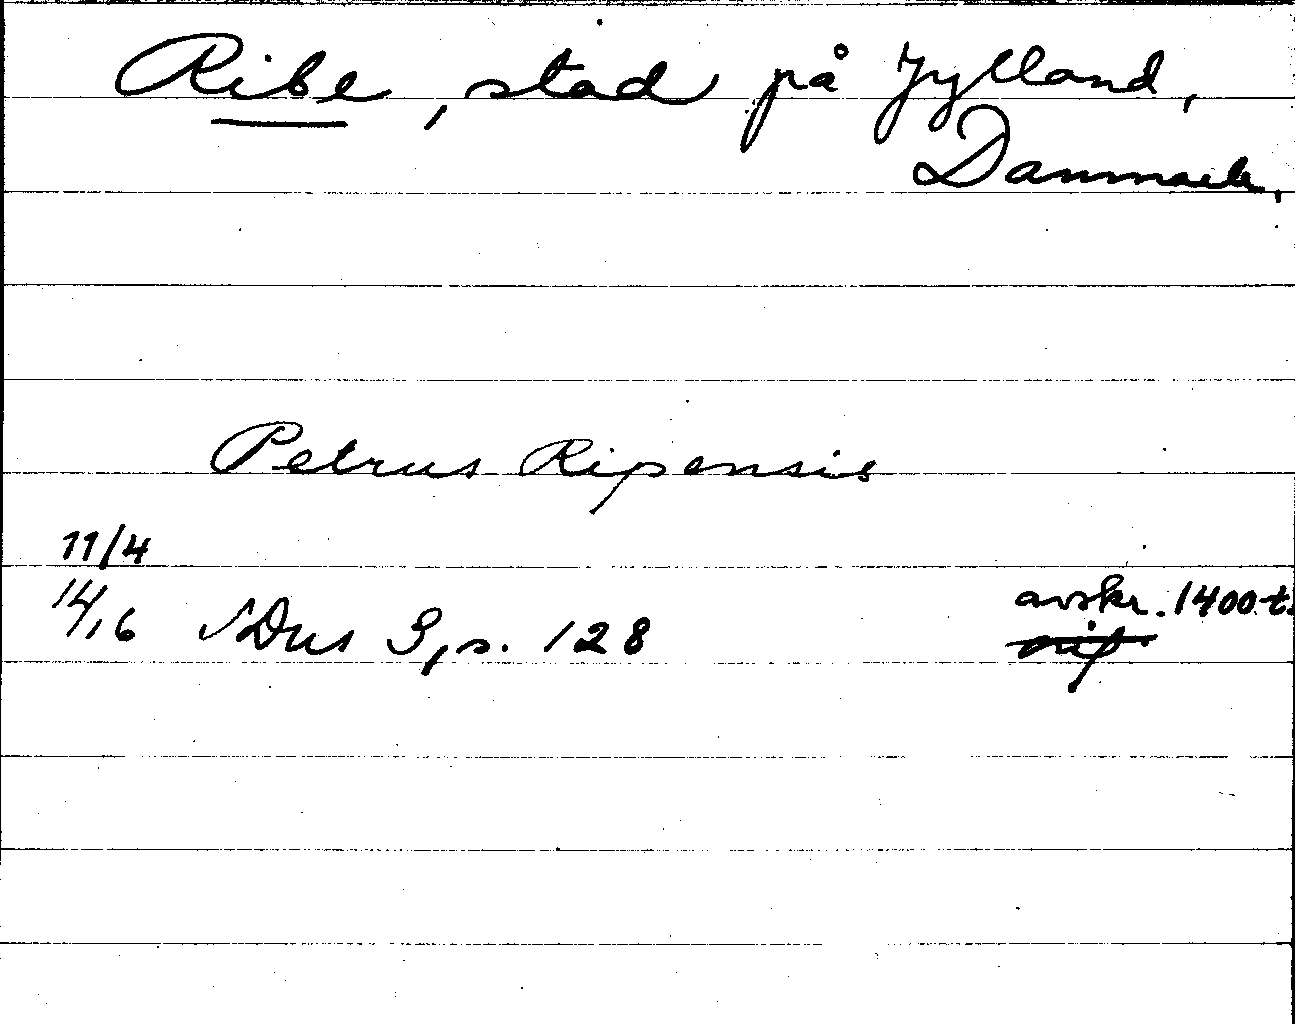 Ribe, stad på Jylland,
Danmark.
Petrus Ripensis
11/4
1416 SDns 3, s. 128
avskr. 1400-t.